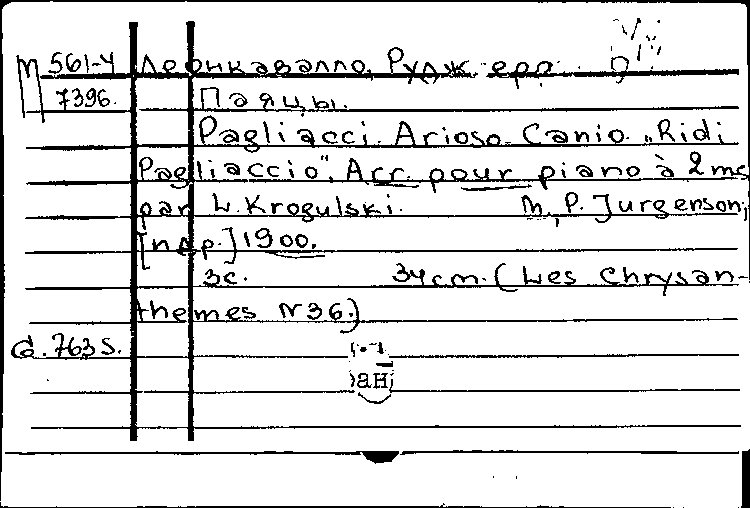 М 561-4 Леонкавалло, Руджеро
7396.
Паяцы.
Pagliacci. Arioso Canio „Ridi
Pagliaccio". Arr. pour piano à 2 ms
par W. Krogulski. M., P. Jurgenson,
[ндр.] 1900.
3с. 34 cm. (Les Chrysan-
themes N 36.)
d. 763 S.